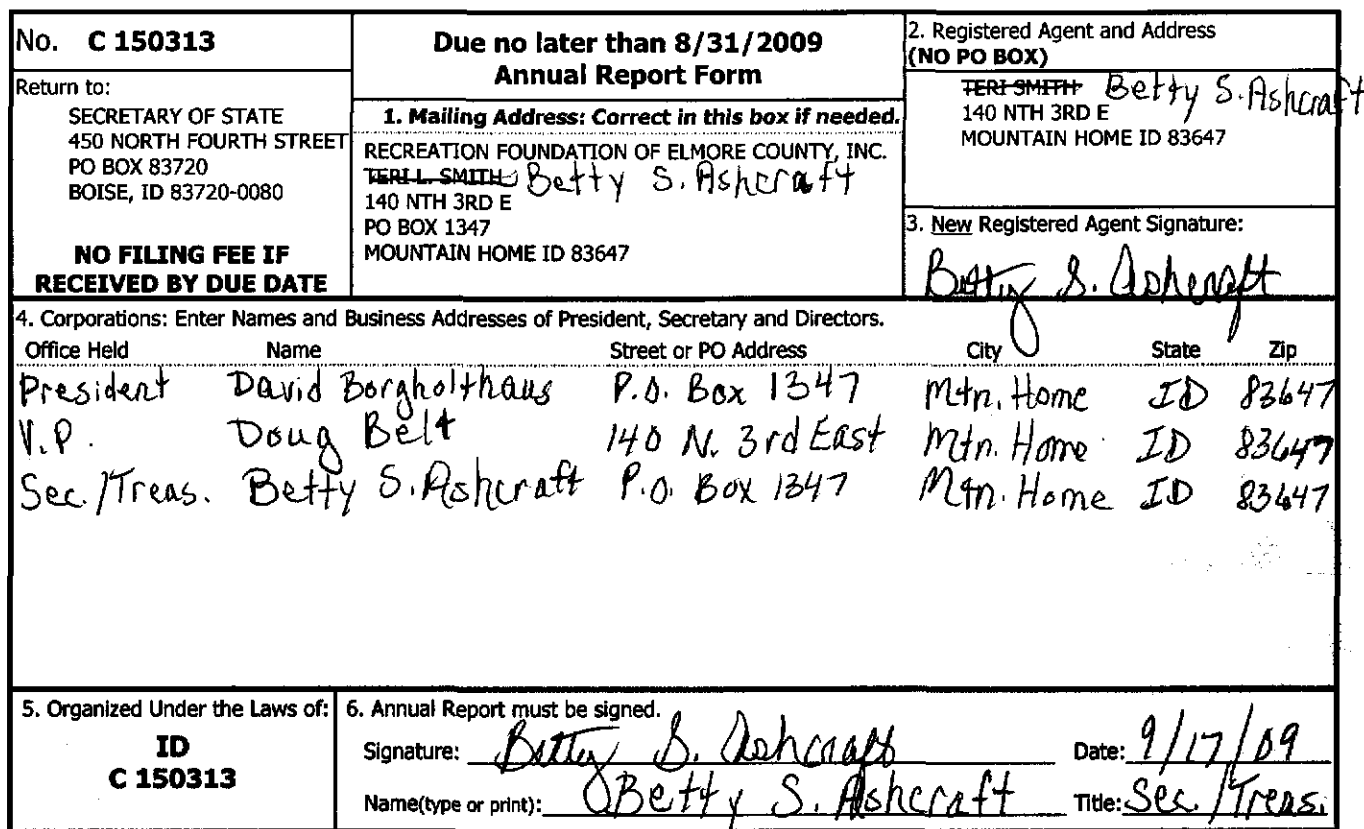 No. C 150313
Return to:
SECRETARY OF STATE
450 NORTH FOURTH STREET
PO BOX 83720
BOISE, ID 83720-0080
NO FILING FEE IF
RECEIVED BY DUE DATE
Due no later than 8/31/2009
Annual Report Form
1. Mailing Address: Correct in this box if needed.
RECREATION FOUNDATION OF ELMORE COUNTY, INC.
TERI L. SMITH Betty S. Ashcraft
140 NTH 3RD E
PO BOX 1347
MOUNTAIN HOME ID 83647
2. Registered Agent and Address
(NO PO BOX)
TERI SMITH Betty S. Ashcraft
140 NTH 3RD E
MOUNTAIN HOME ID 83647
3. New Registered Agent Signature:
Betty S. Ashcraft
4. Corporations: Enter Names and Business Addresses of President, Secretary and Directors.
Office Held Name Street or PO Address City State Zip
President David Borgholthaus P.O. Box 1347 Mtn. Home ID 83647
V.P. Doug Belt 140 N. 3rd East Mtn. Home ID 83647
Sec./Treas. Betty S. Ashcraft P.O. Box 1347 Mtn. Home ID 83647
5. Organized Under the Laws of:
ID
C 150313
6. Annual Report must be signed.
Signature: Betty S. Ashcraft Date: 9/17/09
Name(type or print): Betty S. Ashcraft Title: Sec./Treas.